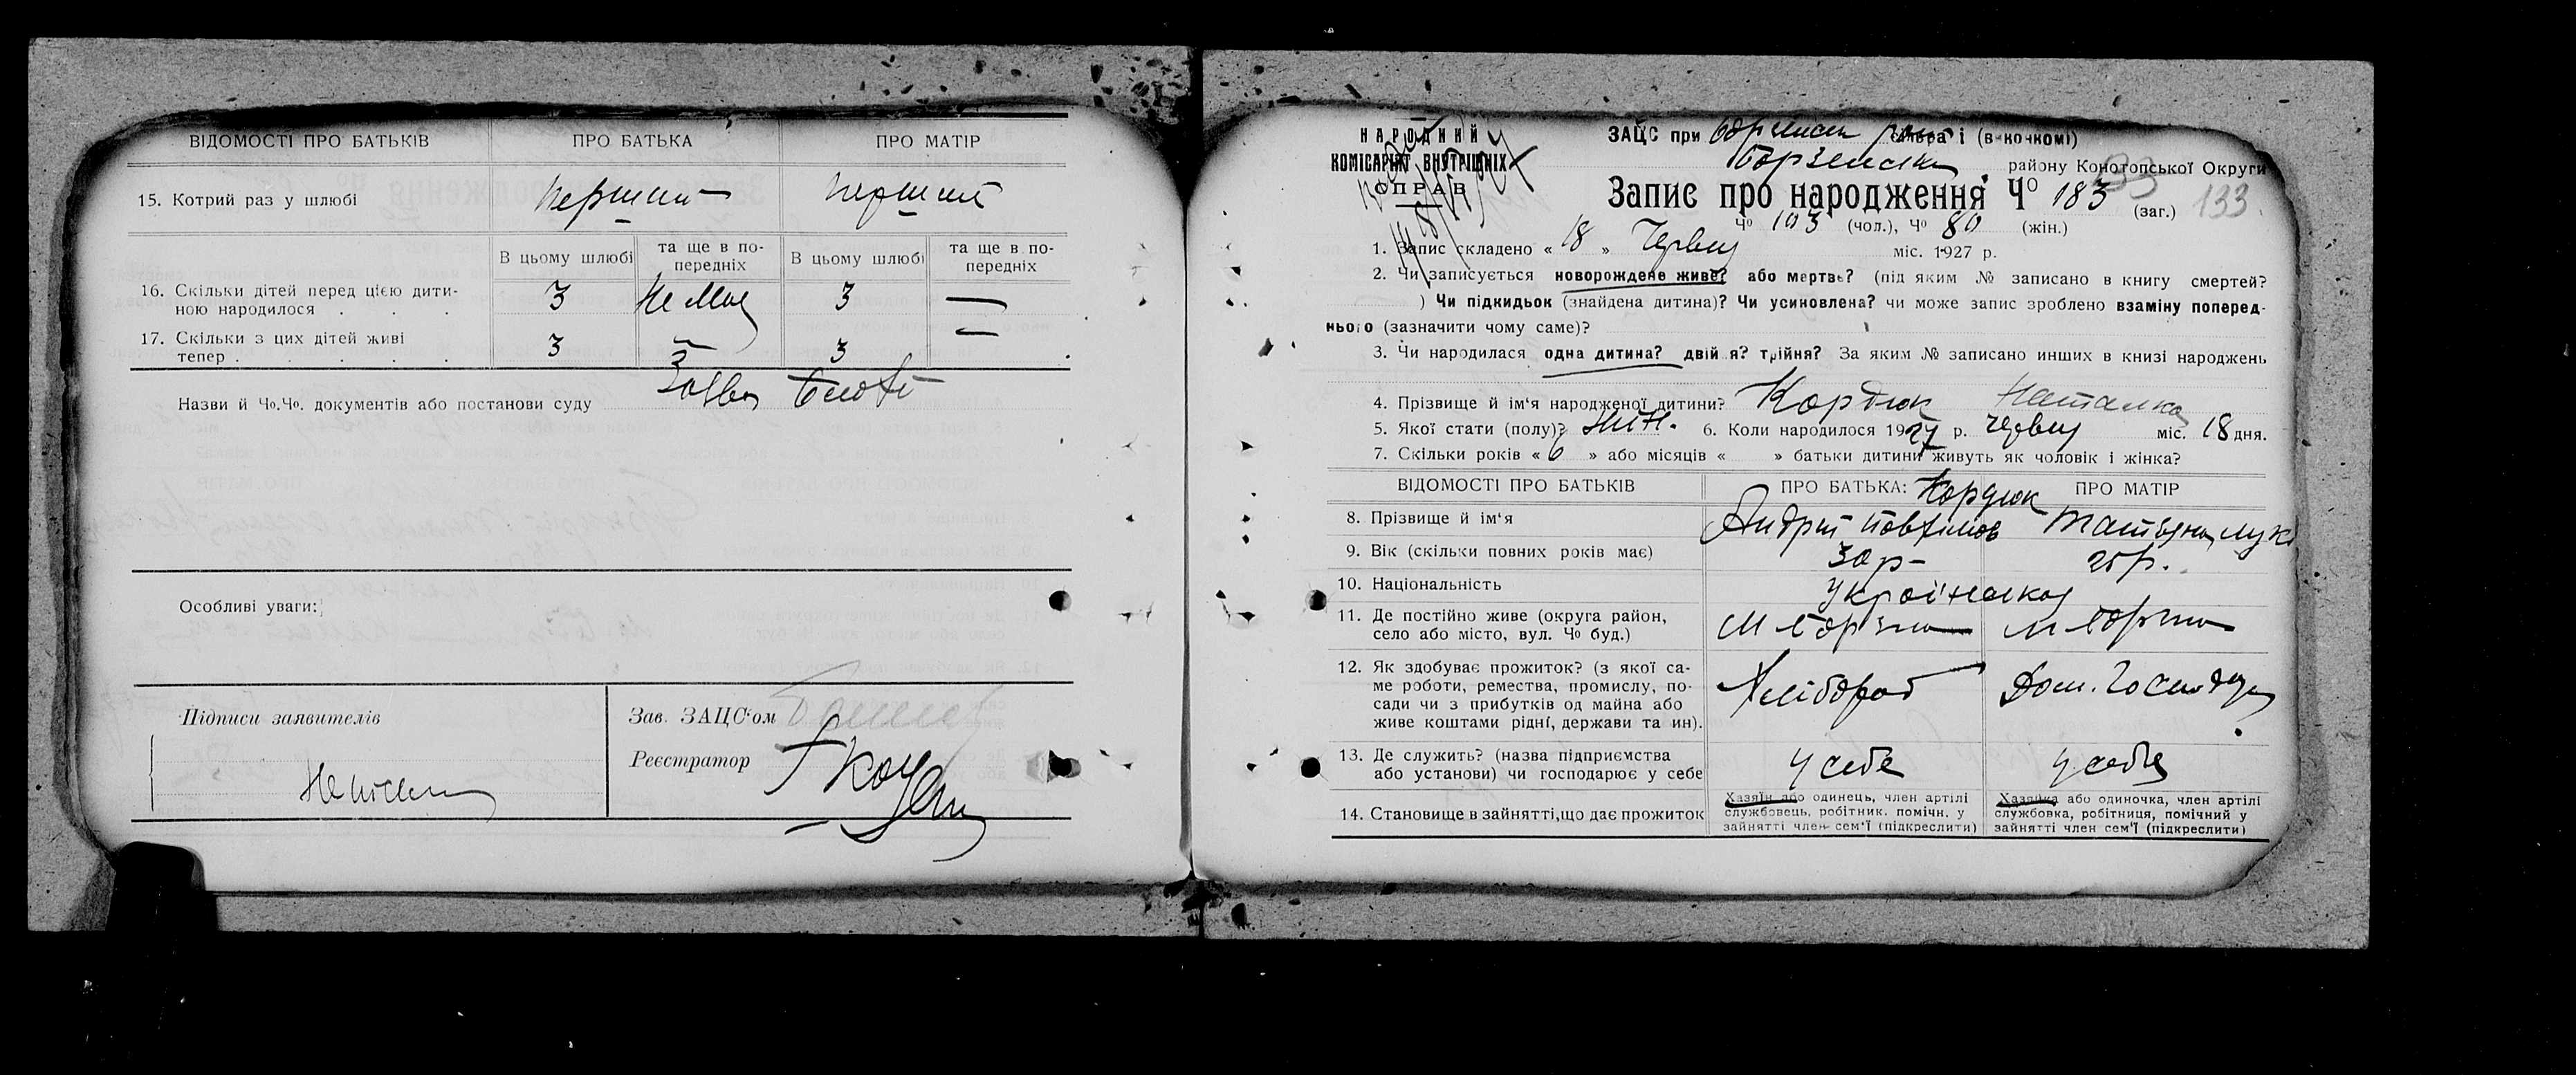 ВІДОМОСТІ ПРО БАТЬКІВ ПРО БАТЬКА ПРО МАТІР
15. Котрий раз у шлюбі перший перший
В цьому шлюбі та ще в по-передніх В цьому шлюбі та ще в по-передніх
16. Скільки дітей перед цією дити-
ною народилося . . . 3 Немає 3 —
17. Скільки з цих дітей живі
тепер . . . . . 3 — 3 —
Назви й Чо.Чо. документів або постанови суду
Особливі уваги:
Підписи заявителів
Зав. ЗАЦС'ом
Реєстратор
НАРОДНИЙ
КОМІСАРІЯТ ВНУТРІШНІХ
СПРАВ
ЗАЦС при
району Конотопської Округи
Запис про народження Чо 183 (заг.) 133
Чо 103 (чол.), Чо 80 (жін.)
1. Запис складено « 18 » Червня міс. 1927 р.
2. Чи записується новорождене живе? або мертве? (під яким № записано в книгу смертей?
) Чи підкидьок (знайдена дитина)? Чи усиновлена? чи може запис зроблено взаміну поперед-
нього (зазначити чому саме)?
3. Чи народилася одна дитина? двійня? трійня? За яким № записано инших в книзі народжень
4. Прізвище й ім'я народженої дитини? Кордюк Наталка
5. Якої стати (полу)? жін. 6. Коли народилося 1927 р. червня міс. 18 дня.
7. Скільки років « 6 » або місяців « » батьки дитини живуть як чоловік і жінка?
ВІДОМОСТІ ПРО БАТЬКІВ ПРО БАТЬКА: Кордюк ПРО МАТІР
8. Прізвище й ім'я Андрій Тетяна
9. Вік (скільки повних років має) 30 р. 25 р.
10. Національність Українська
11. Де постійно живе (округа район,
село або місто, вул. Чо буд.) м Борзна м Борзна
12. Як здобуває прожиток? (з якої са-
ме роботи, ремества, промислу, по-
сади чи з прибутків од майна або
живе коштами рідні, держави та ин). Хлібороб Дом. Господар
13. Де служить? (назва підприємства
або установи) чи господарює у себе у себе у себе
14. Становище в зайнятті, що дає прожиток
Хазяїн або одинець, член артілі
службовець, робітник. помічн. у
зайнятті член сем'ї (підкреслити)
Хазяйка або одиночка, член артілі
службовка, робітниця, помічний у
зайнятті член сем'ї (підкреслити)